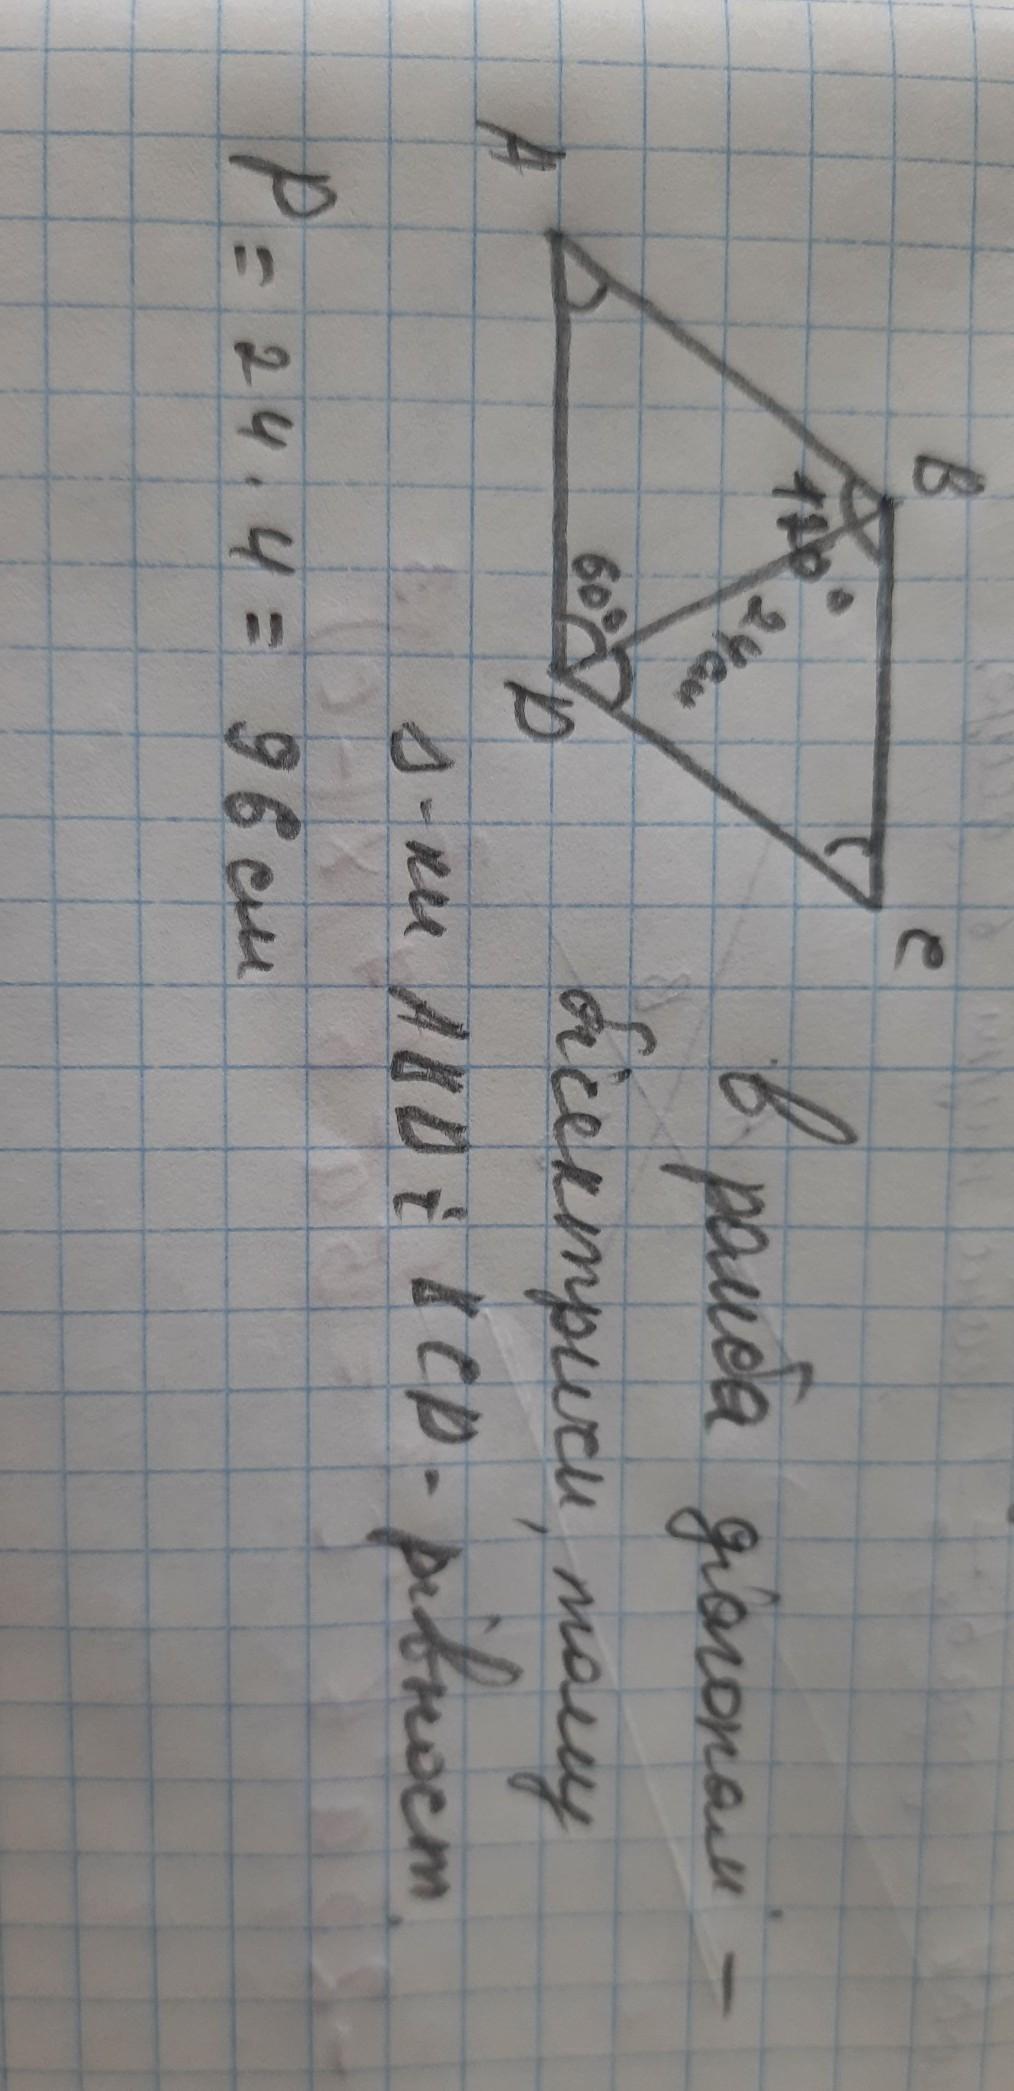 B
C
120°
24 см
60°
A
D
В ромба діагонал -
бісектриси, тому
Δ-ки ABD і BCD - рівност.
P = 24 · 4 = 96 см